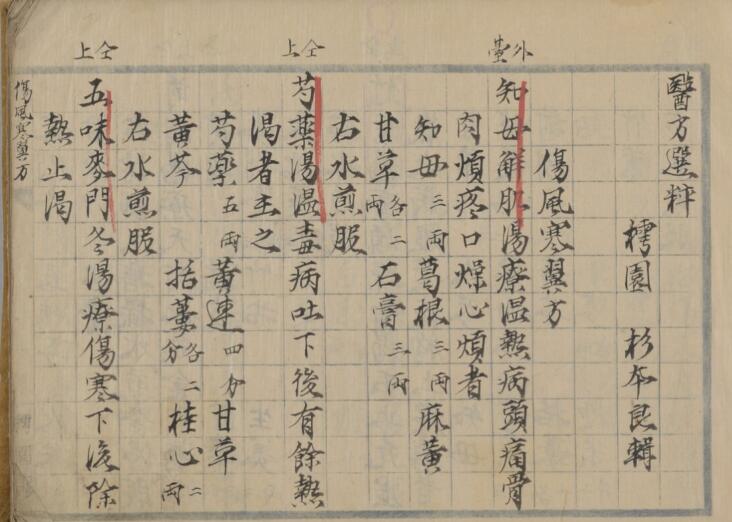 醫方選粹
樗園 杉本良輯
傷風寒翼方
外臺
知母解肌湯療溫熱病頭痛骨
肉煩疼口燥心煩者
知母三兩葛根三兩麻黃
甘草各二兩石膏三兩
右水煎服
仝上
芍藥湯溫毒病吐下後有餘熱
渴者主之
芍藥五兩黃連四分甘草
黃芩 括蔞各二分桂心二兩
右水煎服
仝上
五味麥門冬湯療傷寒下後除
熱止渴
傷風寒翼方